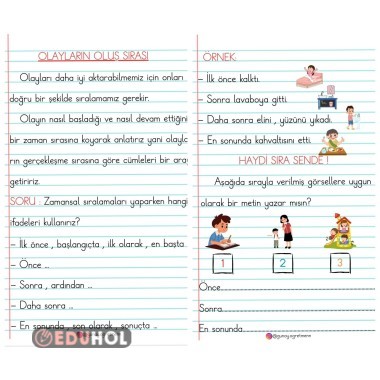 OLAYLARIN OLUŞ SIRASI
Olayları daha iyi aktarabilmemiz için onları
doğru bir şekilde sıralamamız gerekir.
Olayın nasıl başladığı ve nasıl devam ettiğini
bir zaman sırasına koyarak anlatırız yani olayla
rın gerçekleşme sırasına göre cümleleri bir ara
getiririz.
SORU : Zamansal sıralamaları yaparken hangi
ifadeleri kullanırız?
- İlk önce , başlangıçta , ilk olarak , en başta
- Önce ...
- Sonra , ardından ...
- Daha sonra ...
- En sonunda , son olarak , sonuçta ...
EDUHOL
ÖRNEK
- İlk önce kalktı.
- Sonra lavaboya gitti.
- Daha sonra elini , yüzünü yıkadı.
- En sonunda kahvaltısını etti.
HAYDİ SIRA SENDE !
Aşağıda sırayla verilmiş görsellere uygun
olarak bir metin yazar mısın?
1 2 3
Önce
Sonra
En sonunda